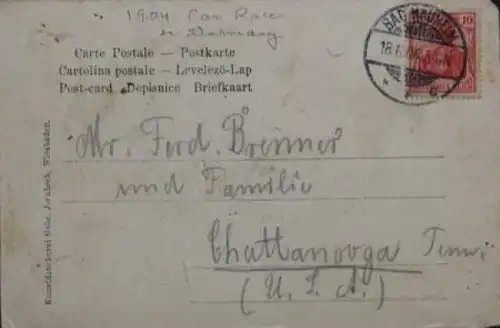 1904 Car Race
in Germany
Carte Postale — Postkarte
Cartolina postale — Levelező-Lap
Post-card Dopisnice Briefkaart
BAD NAUHEIM
10
Mr. Ferd. Brenner
und Familie
Chattanooga Tenn.
(U. S. A.)
Kunstdruckerei Wiesbaden.